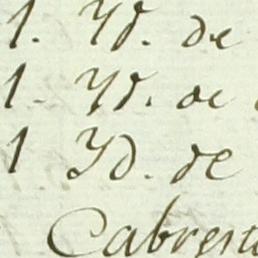 1. Yd. de
1. Yd. de
1 Yd. de